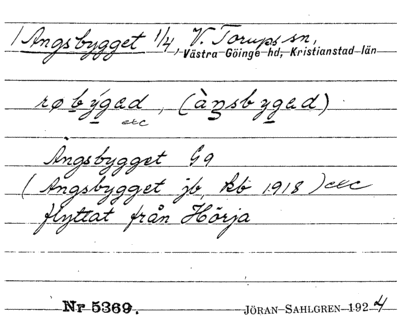 1 Angsbygget 1/4, V. Torups sn,
Västra Göinge hd, Kristianstad län
røbýgəd, (àŋsbygəd)
etc
Ängsbygget G9
(Ängsbygget jb, kb 1918) etc
flyttat från Hörja
Nr 5369.
JÖRAN SAHLGREN 1924